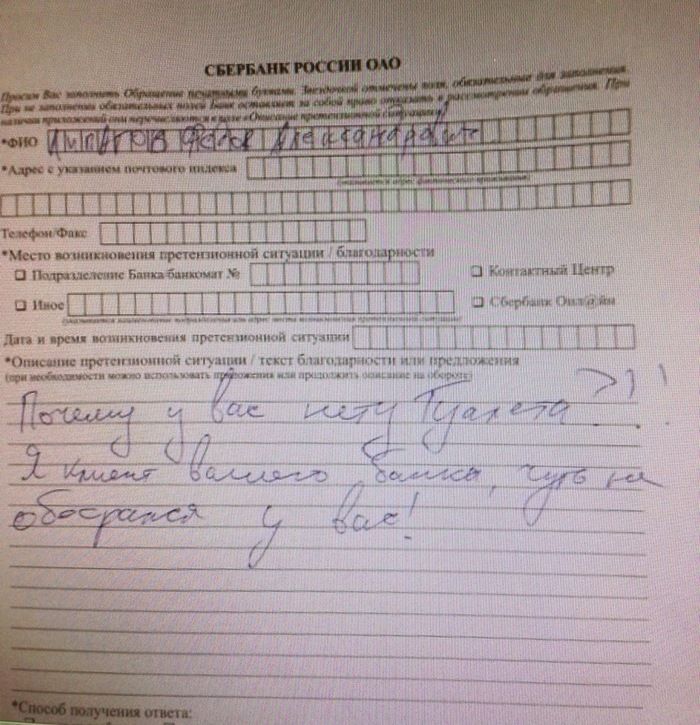 СБЕРБАНК РОССИИ ОАО
Просим Вас заполнить Обращение печатными буквами. Звездочкой отмечены поля, обязательные для заполнения.
При не заполнении обязательных полей Банк оставляет за собой право отказать в рассмотрении обращения. При
наличии приложений они перечисляются в поле «Описание претензионной ситуации»
*ФИО
*Адрес с указанием почтового индекса
Телефон/Факс
*Место возникновения претензионной ситуации / благодарности
Подразделение Банка/банкомат № Контактный Центр
Иное Сбербанк Онл@йн
Дата и время возникновения претензионной ситуации
*Описание претензионной ситуации / текст благодарности или предложения
(при необходимости можно использовать приложения или продолжить описание на обороте)
Почему у вас нету Туалета ??!
Я клиент вашего банка, чуть не
обосрался у вас!
*Способ получения ответа: